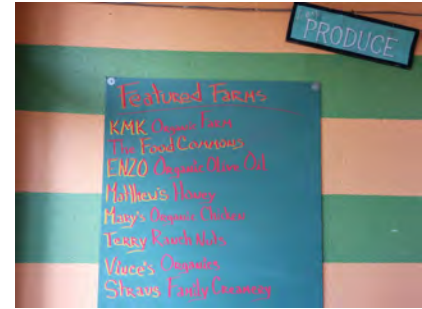 PRODUCE
Featured Farms
KMK Organic Farm
The Food Commons
ENZO Organic Olive Oil
Matthew's Honey
Mary's Organic Chicken
Terry Ranch Nuts
Vince's Organics
Straus Family Creamery